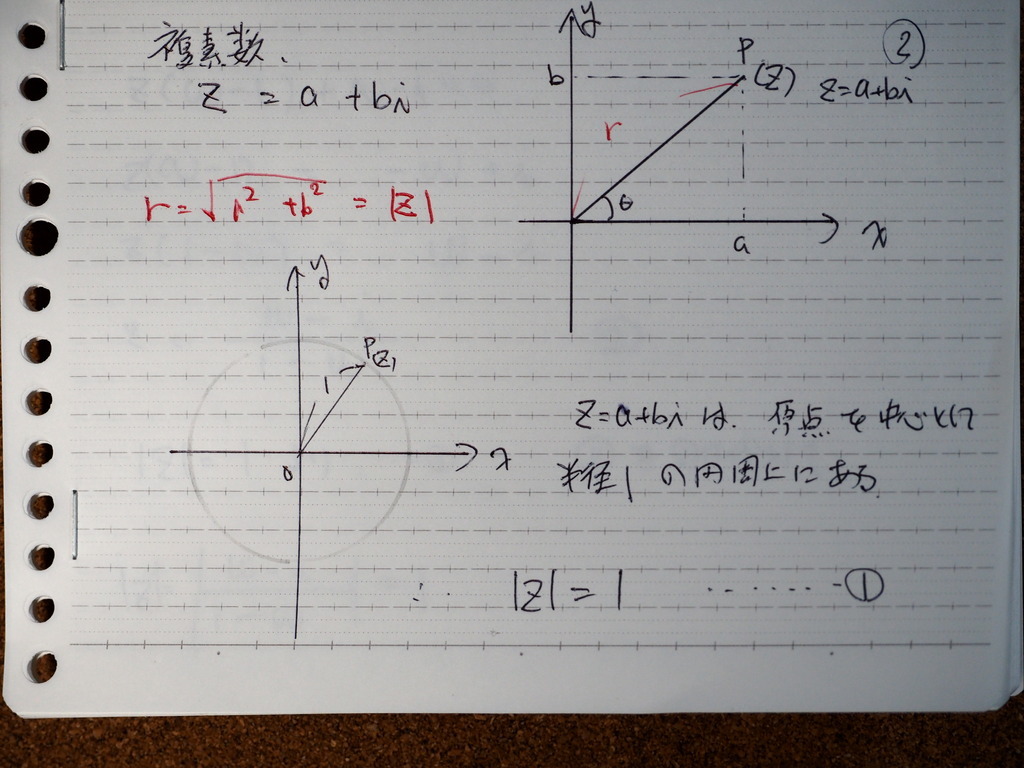 ②
複素数.
z = a + bi
r = √a² + b² = |z|
y
b
P
(z) z=a+bi
r
θ
a
x
y
P(z)
1
0
x
z=a+bi は. 原点を中心として
半径1の円周上にある.
∴ |z| = 1 ........ ①